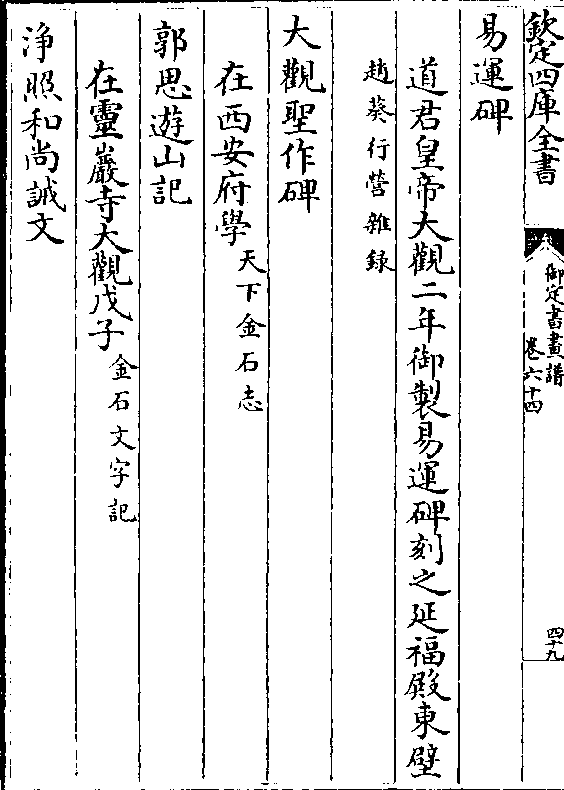 欽定四庫全書
御定書畫譜
卷六十四
四十九
易運碑
道君皇帝大觀二年御製易運碑刻之延福殿東壁
趙葵行營雜録
大觀聖作碑
在西安府學天下金石志
郭思遊山記
在靈巖寺大觀戊子金石文字記
淨照和尚誡文